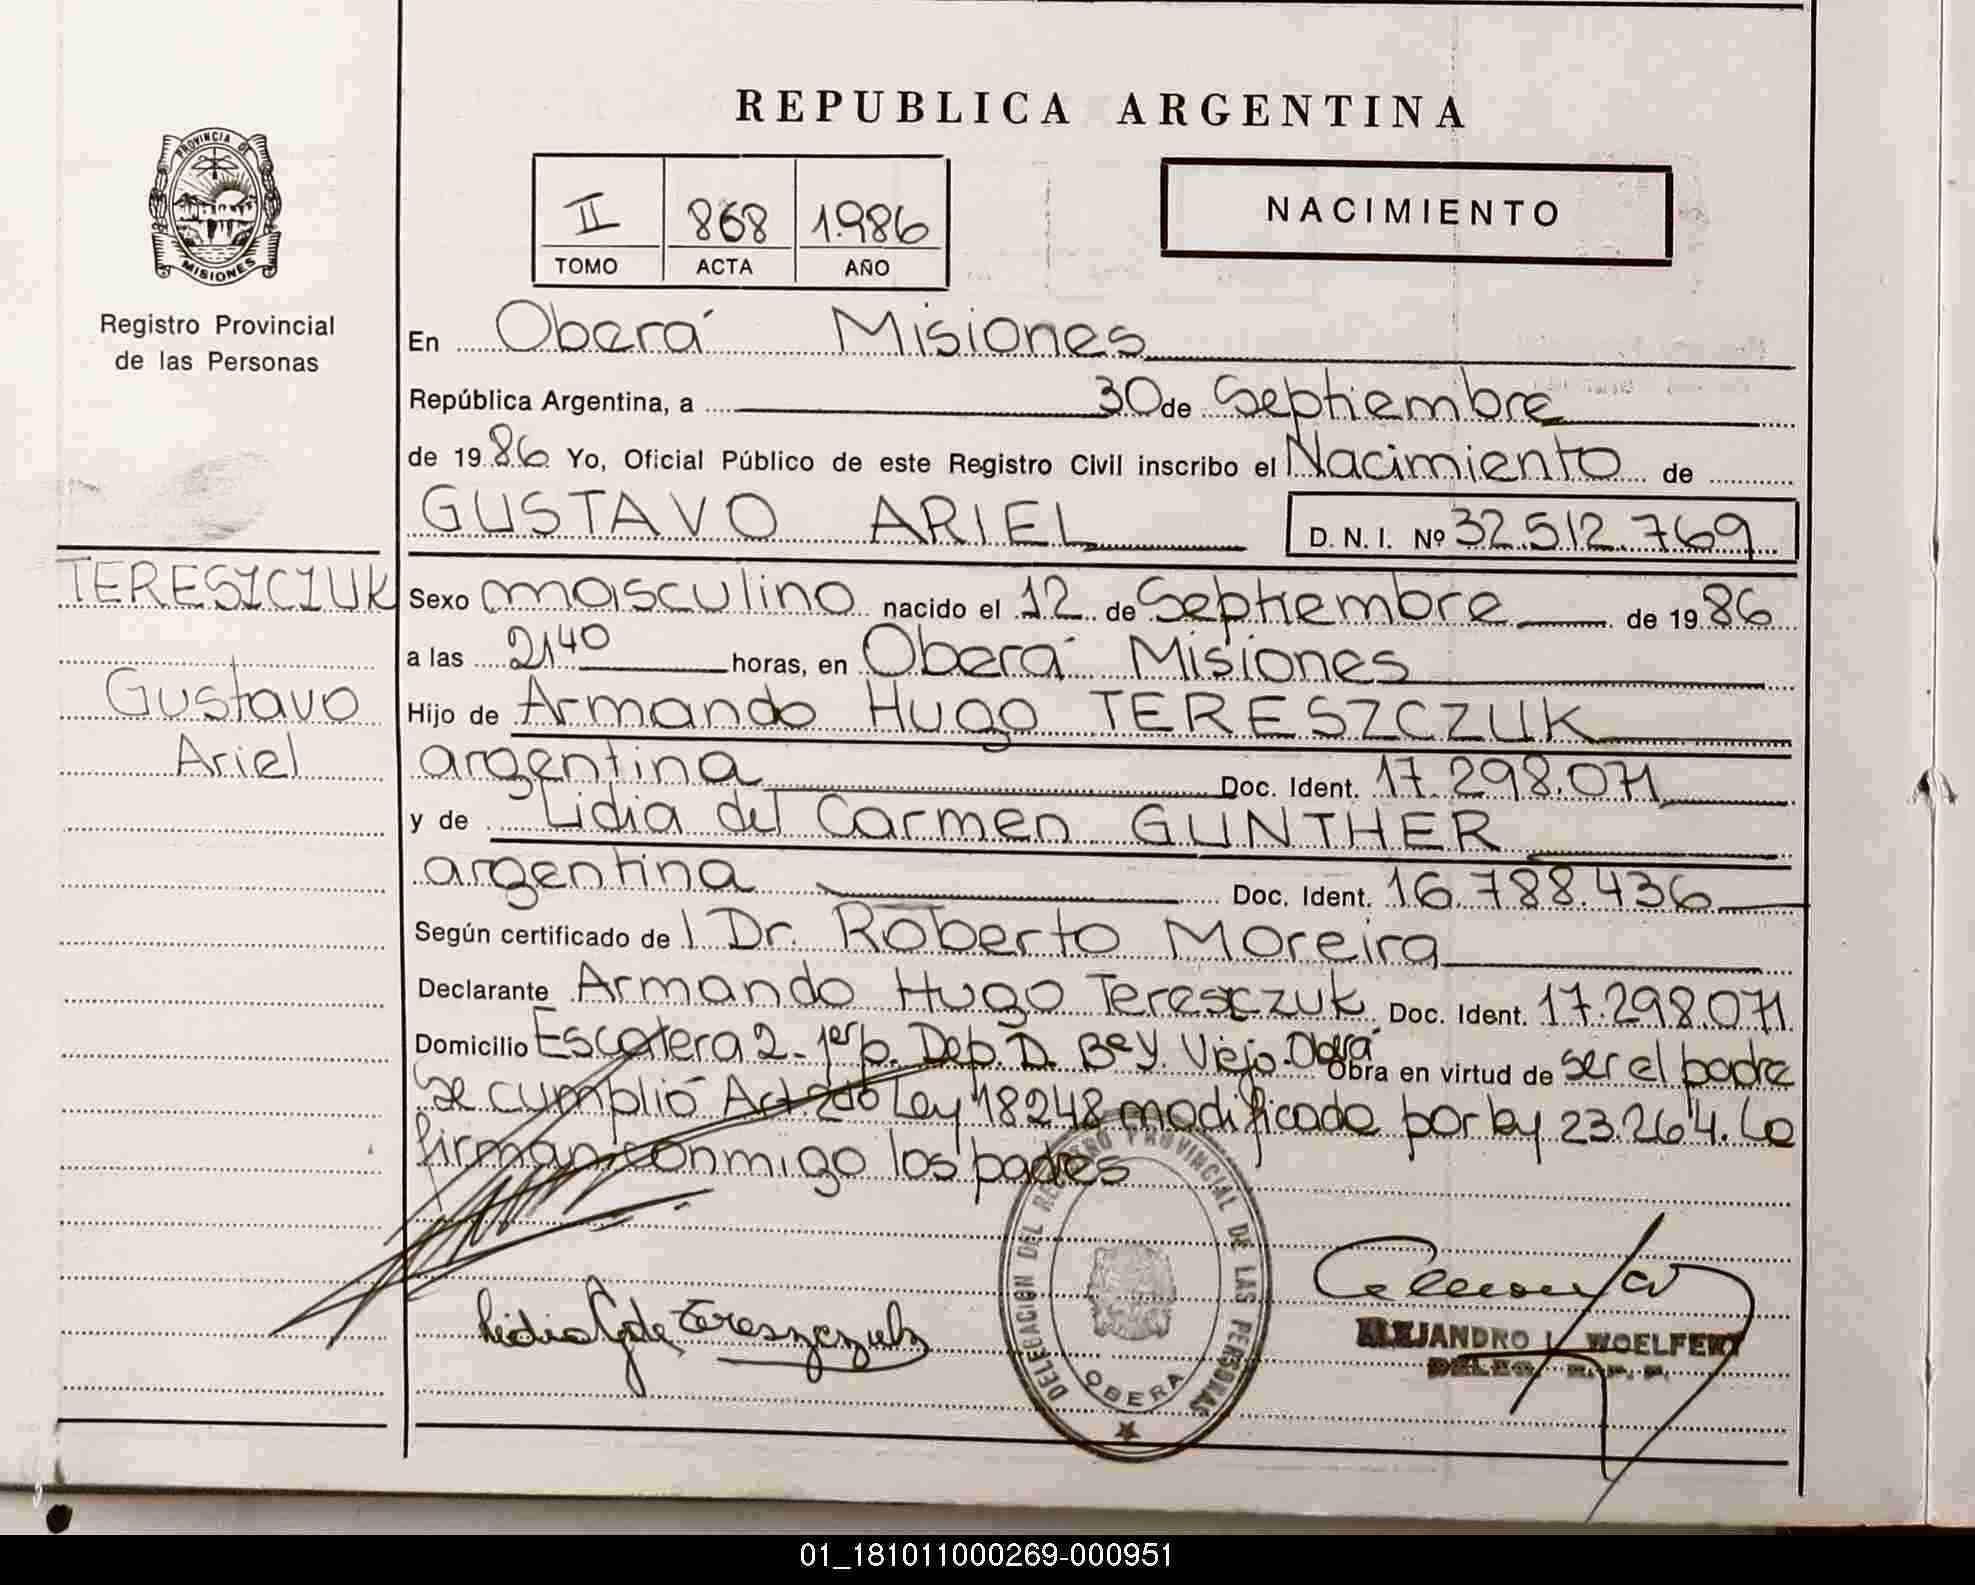 REPUBLICA ARGENTINA
PROVINCIA DE
MISIONES
Registro Provincial
de las Personas
II 868 1.986
TOMO ACTA AÑO
NACIMIENTO
En Oberá Misiones
República Argentina, a 30 de Septiembre
de 1986 Yo, Oficial Público de este Registro Civil inscribo el Nacimiento de
GUSTAVO ARIEL D. N. I. Nº 32.512.769
TERESZCZUK
Gustavo
Ariel
Sexo masculino nacido el 12 de Septiembre de 1986
a las 21⁴⁰ horas, en Oberá Misiones
Hijo de Armando Hugo TERESZCZUK
argentina Doc. Ident. 17.298.071
y de Lidia del Carmen GUNTHER
argentina Doc. Ident. 16.788.436
Según certificado de l Dr. Roberto Moreira
Declarante Armando Hugo Teresczuk Doc. Ident. 17.298.071
Domicilio Escalera 2- 1er p. Dep. D. Bº Y. Viejo. Oberá Obra en virtud de ser el padre
Se cumplió Art. 2do Ley 18248 modificada por ley 23.264. Lo
firman conmigo los padres
DELEGACION DEL REGISTRO PROVINCIAL DE LAS PERSONAS
OBERA
Lidia G de Tereszczuk
ALEJANDRO L. WOELFERT
DELEG. R. P. P.
01_181011000269-000951